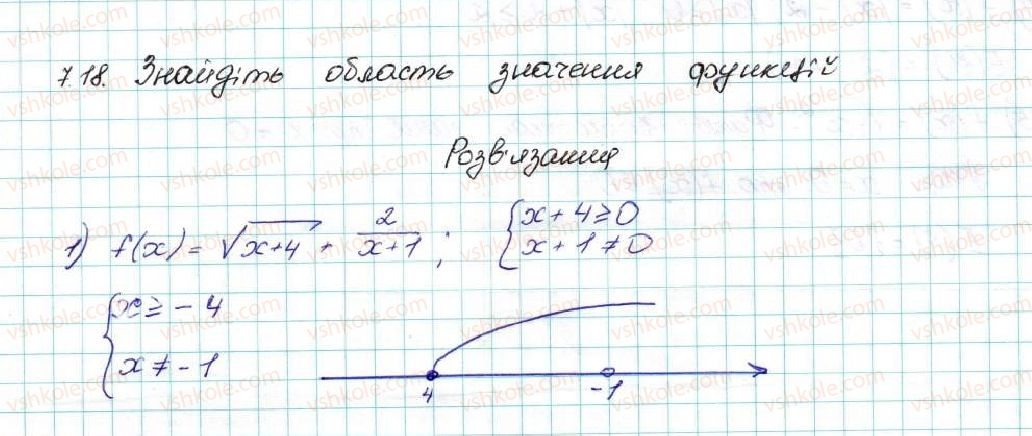 7.18. Знайдіть область значення функцій
Розв'язання
1) f(x) = √x+4 + 2/x+1 ; {x + 4 ≥ 0
x + 1 ≠ 0
{x ≥ - 4
x ≠ - 1
4 -1